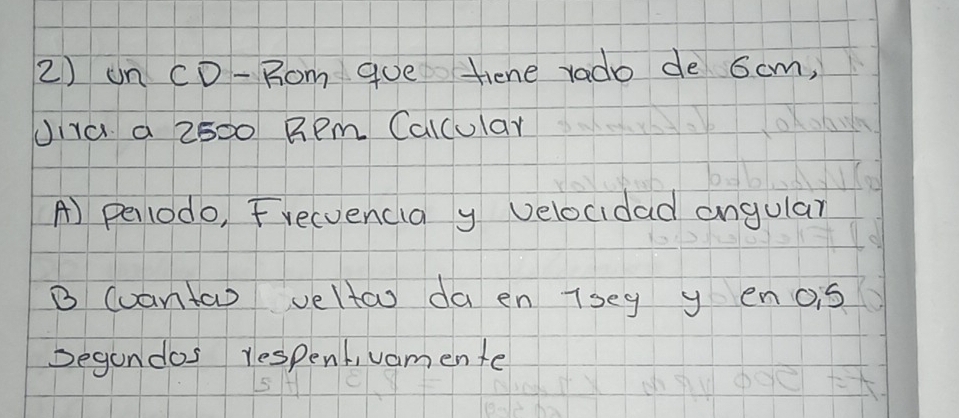 2) un CD-Rom que tiene radio de 6cm,
Jira a 2500 RPm Calcular
A) Periodo, Frecuencia y velocidad angular
B Cuantas veltas da en 1seg y en 0,5
segundos respentivamente